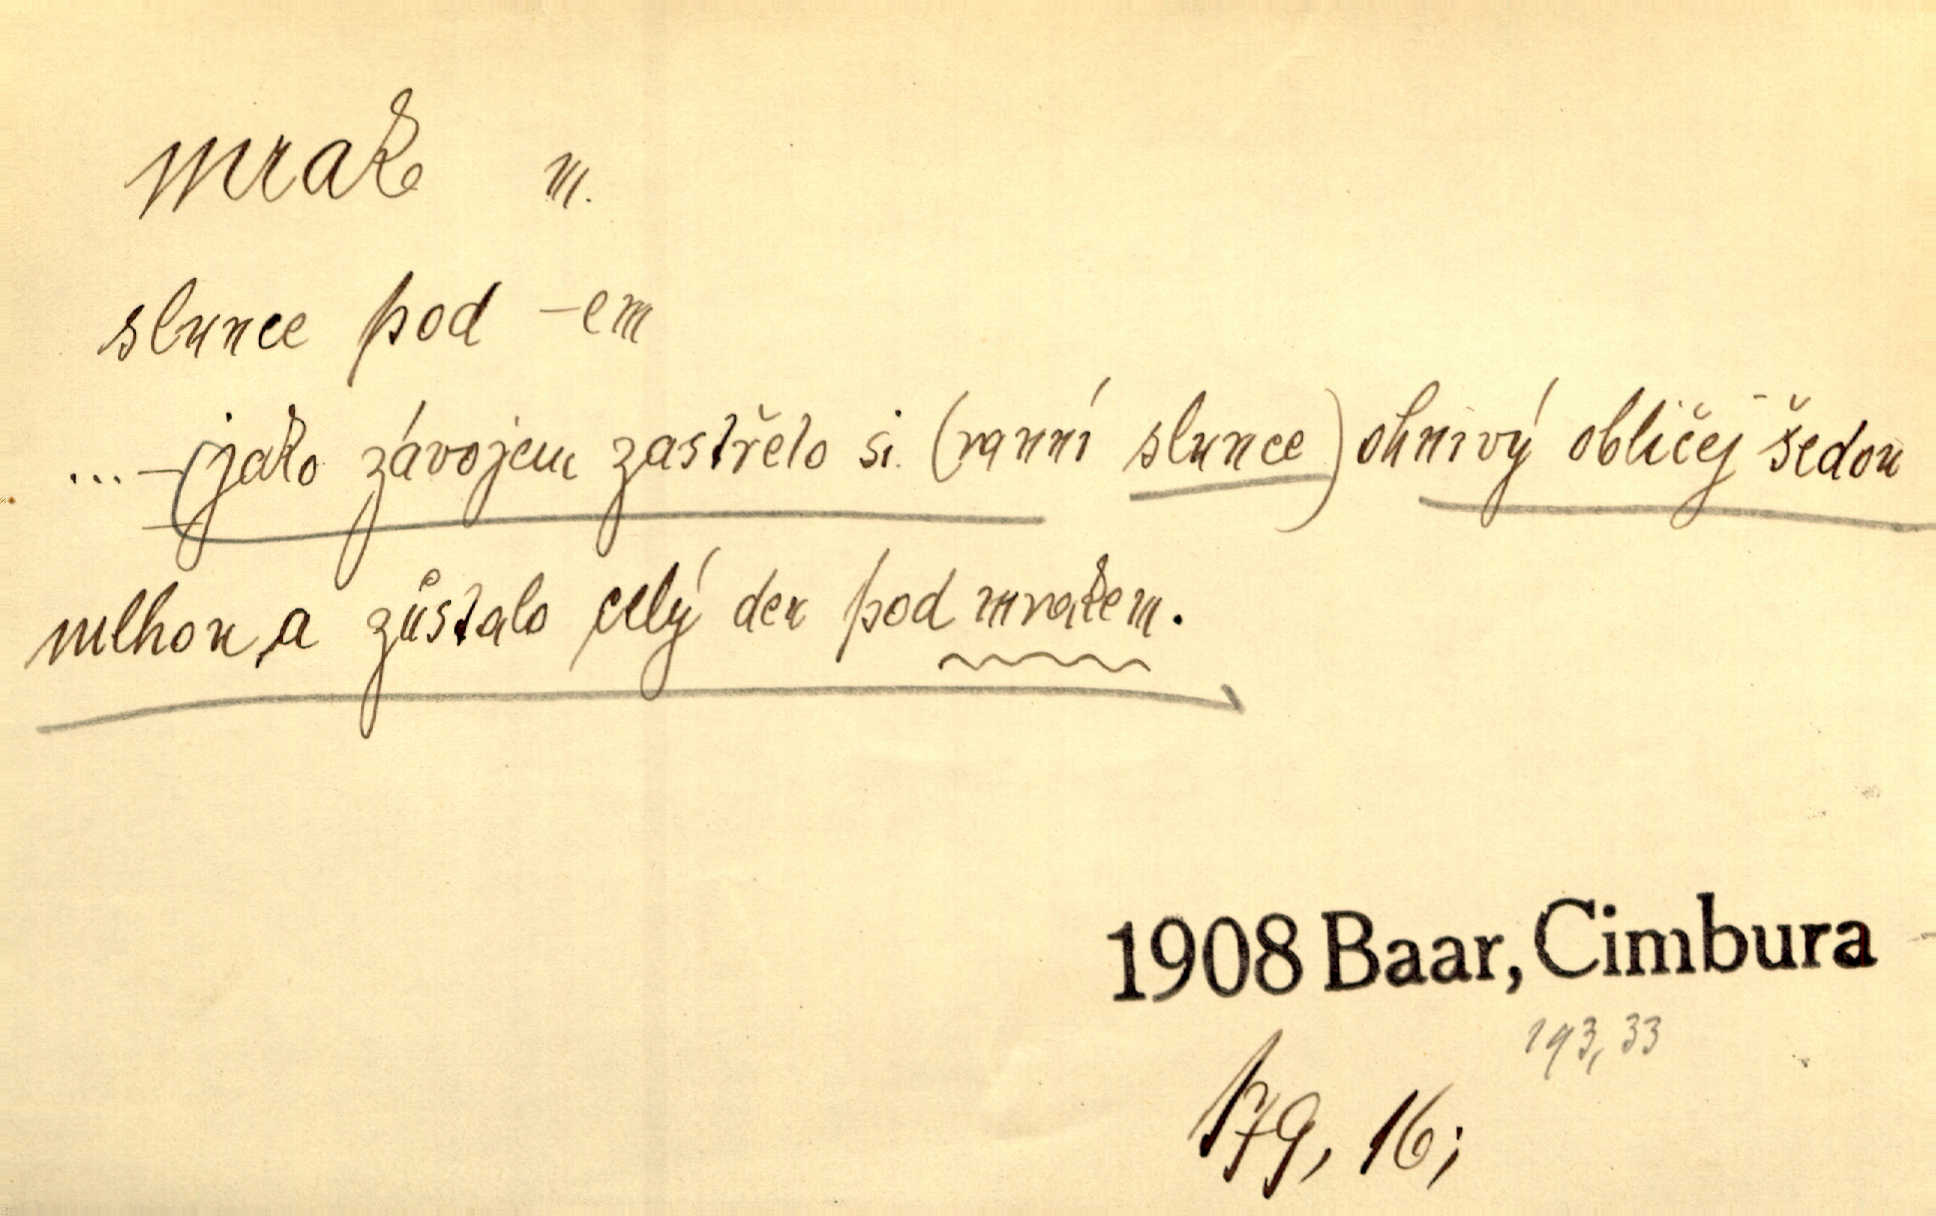 mrak m.
slunce pod -em
... - (jako závojem zastřelo si (ranní slunce) ohnivý obličej šedou
mlhou, a zůstalo celý den pod mrakem.
1908 Baar, Cimbura
193, 33
179, 16;